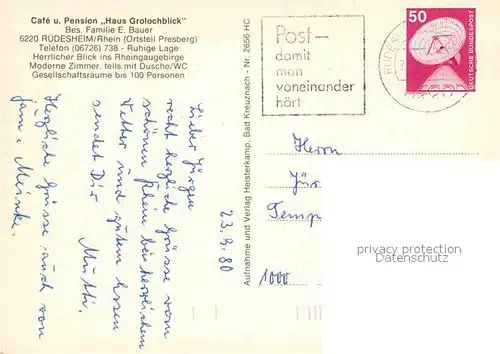 Café u. Pension „Haus Grolochblick"
Bes. Familie E. Bauer
6220 RÜDESHEIM/Rhein (Ortsteil Presberg)
Telefon (06726) 738 - Ruhige Lage
Herrlicher Blick ins Rheingaugebirge
Moderne Zimmer, teils mit Dusche/WC
Gesellschaftsräume bis 100 Personen
Post—
damit
man
voneinander
hört
RÜDES
50
DEUTSCHE BUNDESPOST
Aufnahme und Verlag Heisterkamp, Bad Kreuznach - Nr. 2656 HC
23.9.80
Lieber Jürgen
recht herzliche Grüsse vom
schönen Rhein bei herrlichem
Wetter und gutem Essen
sendet Dir
Mutti.
Herzliche Grüsse auch von
Meinke.
Herrn
Jür
Temp
1000
privacy protection
Datenschutz